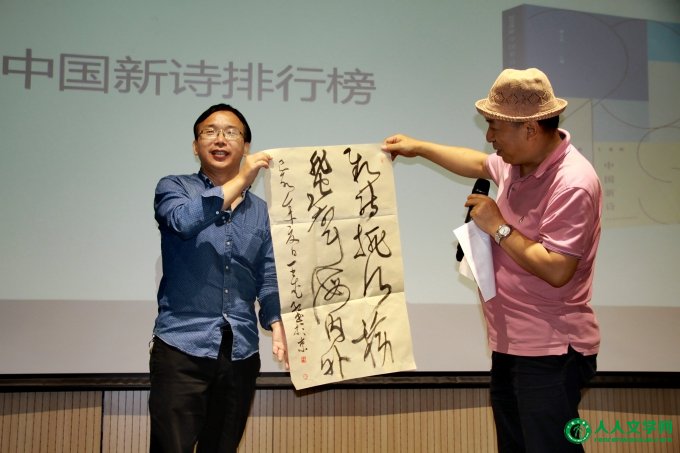 中国新诗排行榜
新诗排行榜
蜚声海内外
年夏日
中国新诗
人人文学网